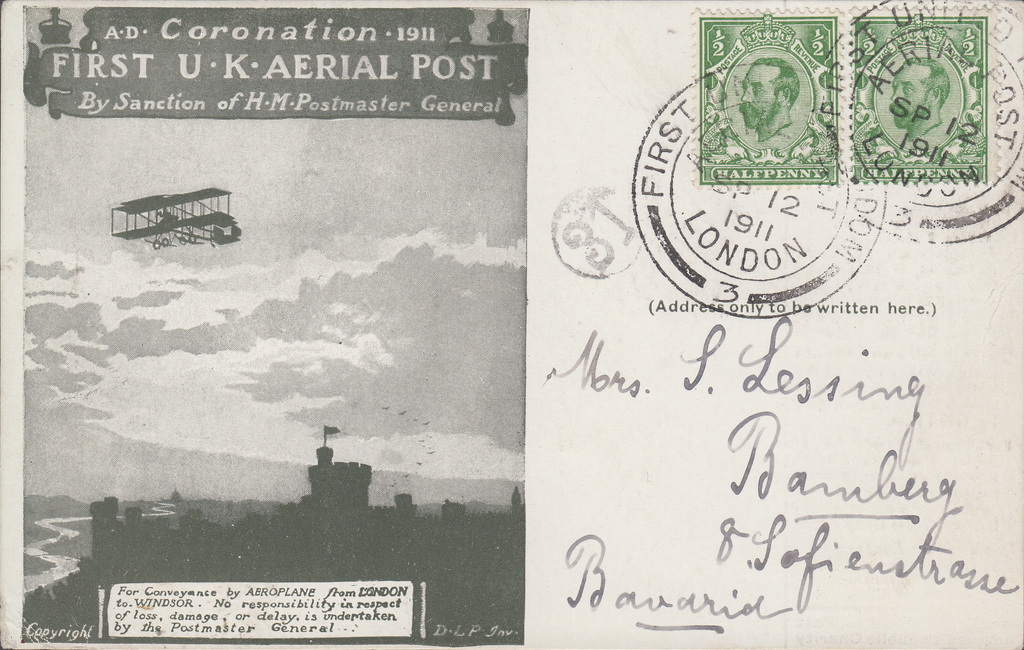 A·D· Coronation ·1911
FIRST U·K·AERIAL POST
By Sanction of H·M·Postmaster General
For Conveyance by AEROPLANE from LONDON
to WINDSOR. No responsibility in respect
of loss, damage, or delay, is undertaken
by the Postmaster General...
Copyright
D·L·P Inv.
½ ½
POSTAGE REVENUE
HALFPENNY
½
HALFPENNY
FIRST
SP 12
1911
LONDON
3
AERIAL POST
SP 12
1911
LONDON
3
31
(Address only to be written here.)
Mrs. S. Lessing
Bamberg
8. Sofienstrasse
Bavaria